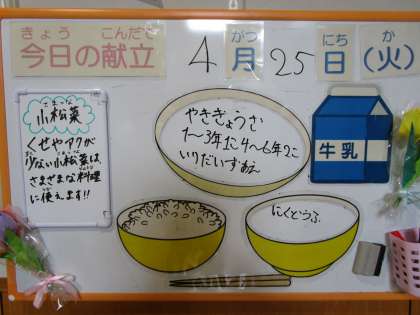 きょう こんだて
今日の献立 4 がつ 月 25 にち 日 か (火)
こまつな
小松菜
くせやアクが
少ない小松菜は、
さまざまな料理
に使えます!!
やきぎょうざ
1〜3年1こ 4〜6年2こ
いりだいずあえ
牛乳
にくどうふ